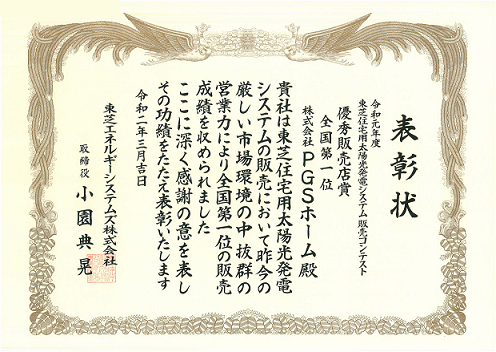 表彰状
令和元年度
東芝住宅用太陽光発電システム販売コンテスト
優秀販売店賞
全国第一位
株式会社PGSホーム殿
貴社は東芝住宅用太陽光発電
システムの販売において昨今の
厳しい市場環境の中抜群の
営業力により全国第一位の販売
成績を収められました
ここに深く感謝の意を表し
その功績をたたえ表彰いたします
令和二年三月吉日
東芝エネルギーシステムズ株式会社
取締役 小園典晃